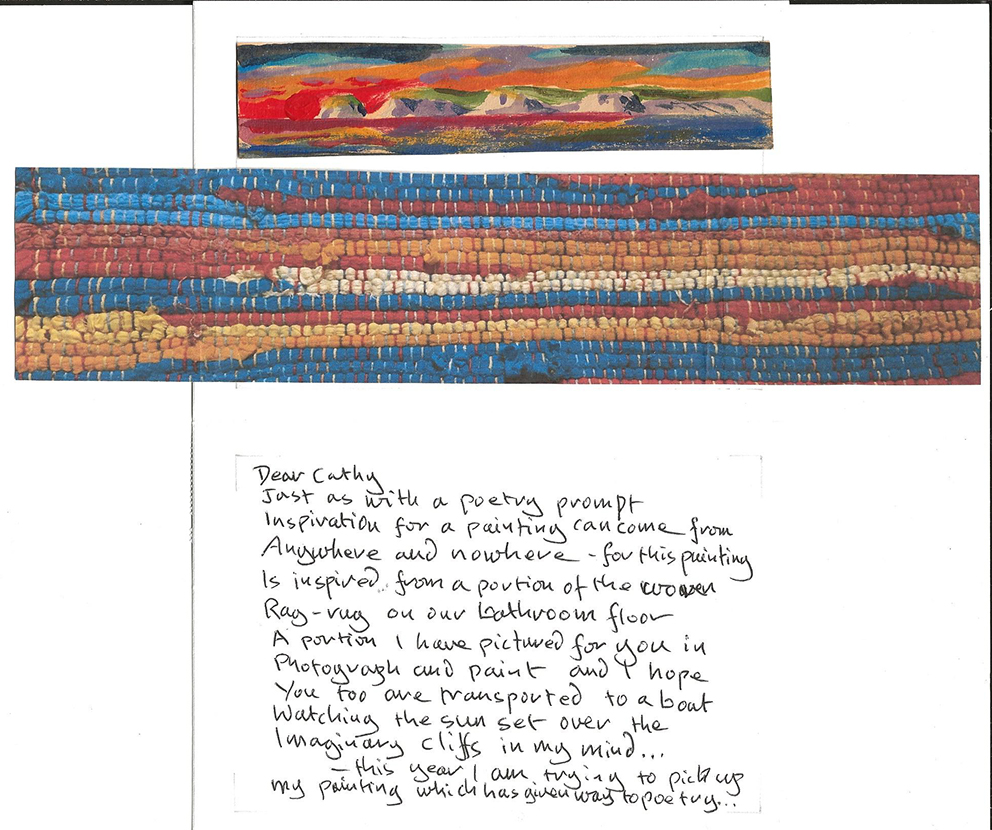 Dear Cathy
Just as with a poetry prompt
Inspiration for a painting can come from
Anywhere and nowhere - for this painting
Is inspired from a portion of the woven
Rag-rug on our bathroom floor
A portion I have pictured for you in
Photograph and paint and I hope
You too are transported to a boat
Watching the sun set over the
Imaginary cliffs in my mind...
- this year I am trying to pick up
my painting which has given way to poetry...